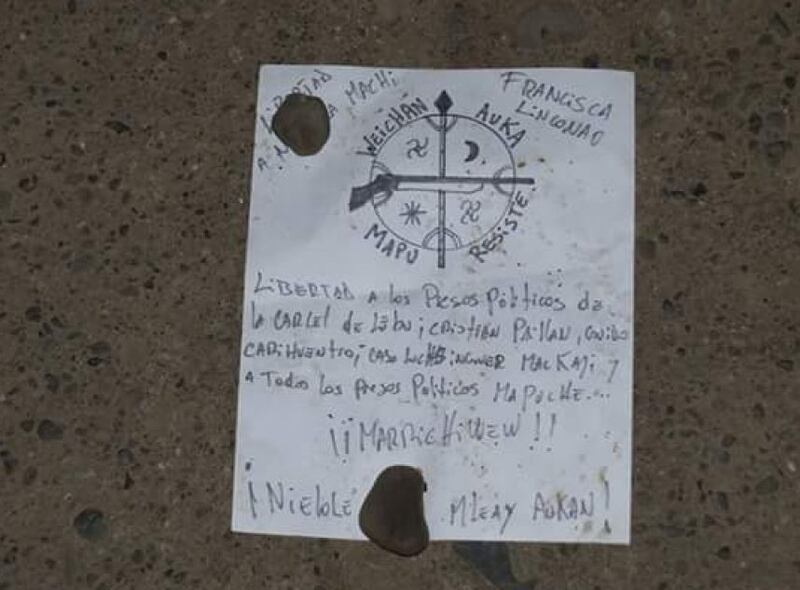 LIBERTAD
A LA MACHI
FRANCISCA
LINCONAO
WEICHAN AUKA
MAPU RESISTE.
LIBERTAD A los PRESOS Políticos de
la CARCEL de LEbu; CRISTIAN PAllAN, GUIDO
CARIHUENTRO; CASO LUCHSINGUER MACKAY; Y
A TODOS los PRESOS Políticos MAPUCHE...
¡¡MARRICHIWEW!!
¡NIELOLE MLEAY AUKAN!